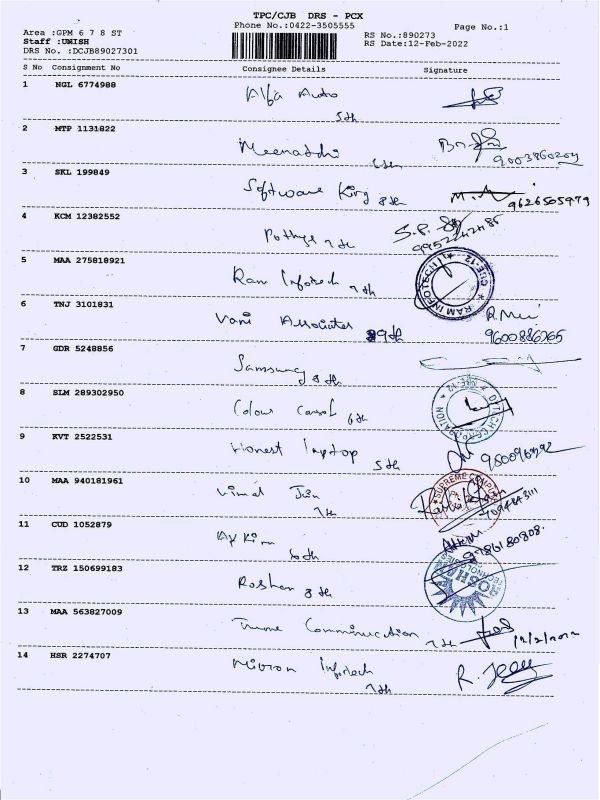 TPC/CJB DRS - PCX
Phone No.:0422-3505555
Page No.:1
Area :GPM 6 7 8 ST
RS No.:890273
Staff :UMISH
RS Date:12-Feb-2022
DRS No. :DCJB89027301
S No Consignment No Consignee Details Signature
1 NGL 6774988 Alfa Auto 5th
2 MTP 1131822 Meenatchi 6th
9003860204
3 SKL 199849 Software King 8th M.A
9626505979
4 KCM 12382552 Pothys 7th S.P.
9952242485
5 MAA 275818921 Ram Infotech 7th
RAM INFOTECH CBE-12
6 TNJ 3101831 Vani Associates 9th
9600886265
7 GDR 5248856 Samsung 8th
8 SLM 289302950 Colour Carol 6th
9 KVT 2522531 Honest laptop 5th
10 MAA 940181961 Vimal Jain 7th
SUPREME
11 CUD 1052879
9786180808.
12 TRZ 150699183 Roshan 8th
ROSHAN TECHNOLOGIES
13 MAA 563827009 Communication 7th
12/2/2022
14 HSR 2274707 Micron Infotech 7th